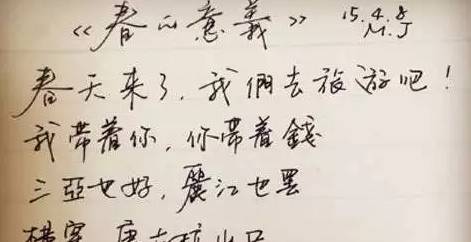 《春的意義》 15.4.8
M.J
春天来了，我們去旅游吧！
我带着你，你带着錢
三亞也好，麗江也罢